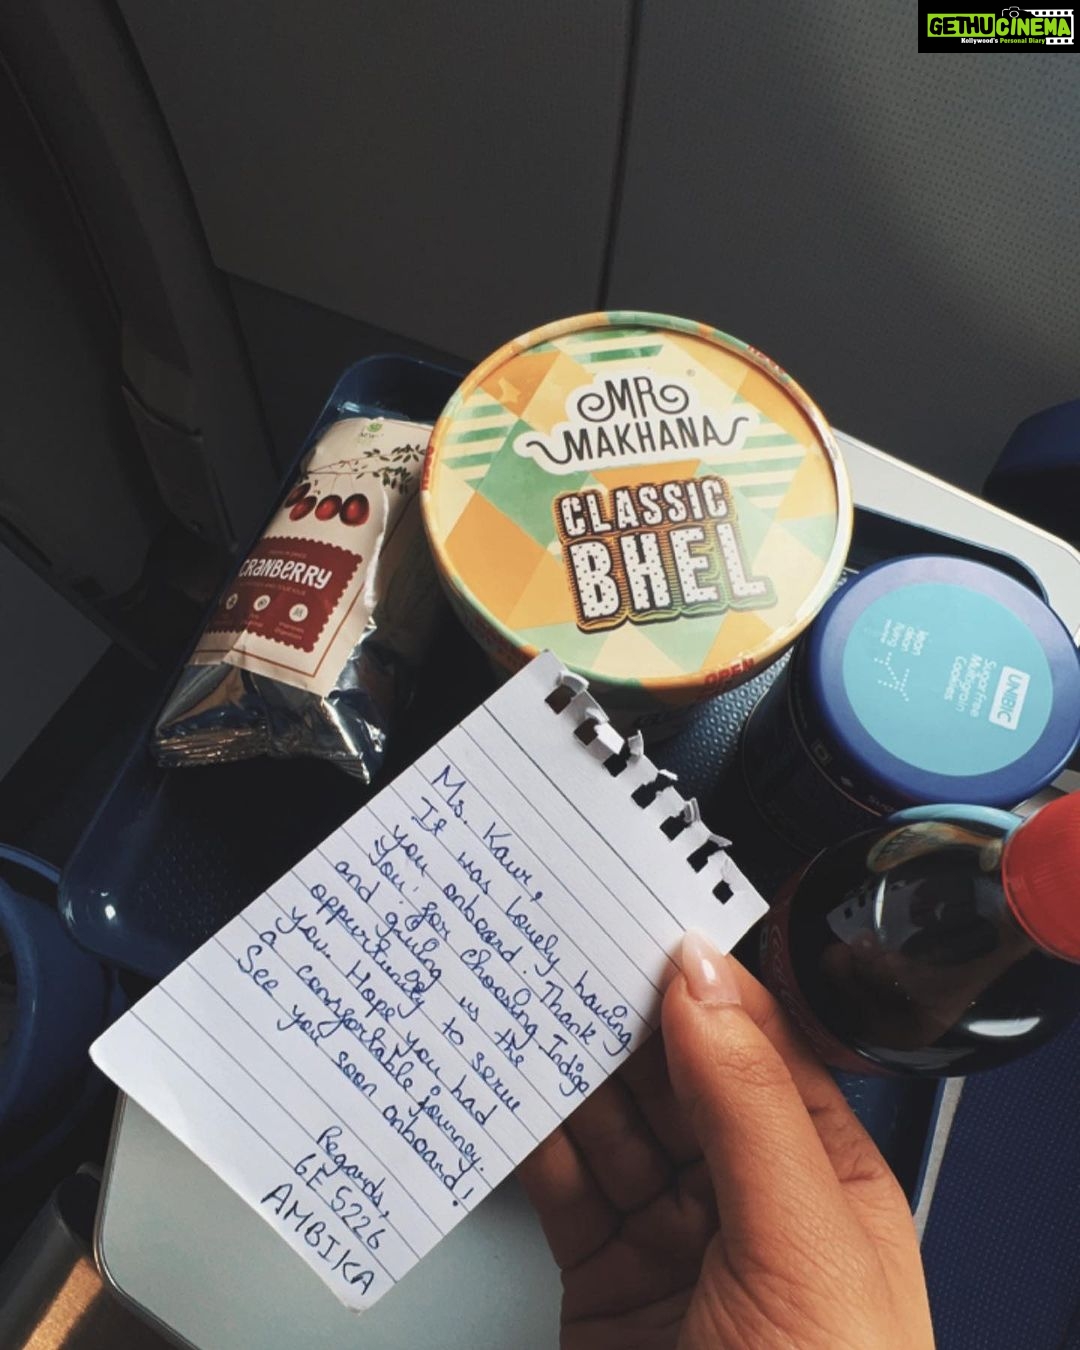 GETHU CINEMA
Kollywood's Personal Diary
MR
MAKHANA
®
CLASSIC
BHEL
OPEN
CRANBERRY
UNIBIC
Sugar Free
Multigrain
Cookies
Ms. Kaur,
It was lovely having
you onboard. Thank
You! for choosing Indigo
and giving us the
oppurtunity to serve
you. Hope you had
a comfortable journey.
See you soon onboard!
Regards,
6E 5226
AMBIKA